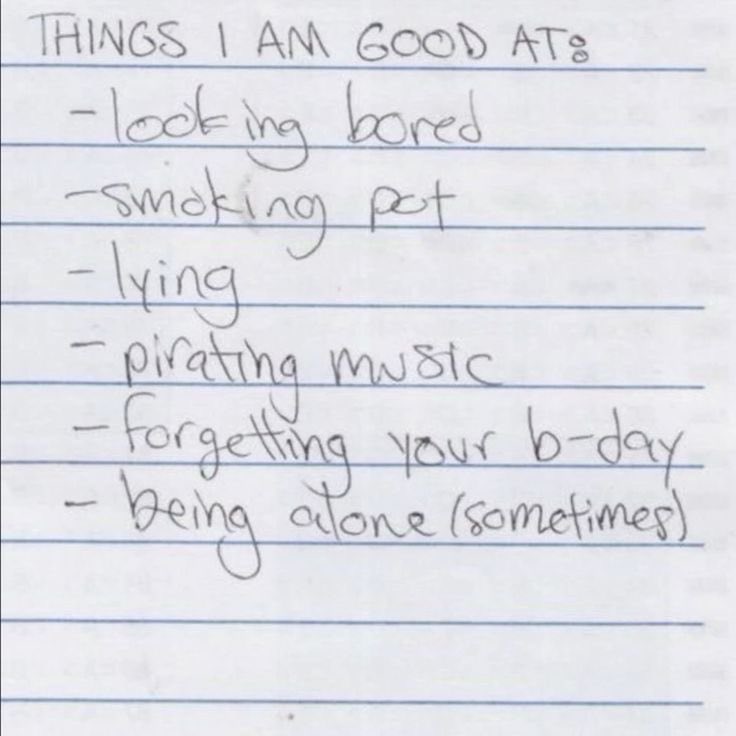 THINGS I AM GOOD AT:
- looking bored
- smoking pot
- lying
- pirating music
- forgetting your b-day
- being alone (sometimes)